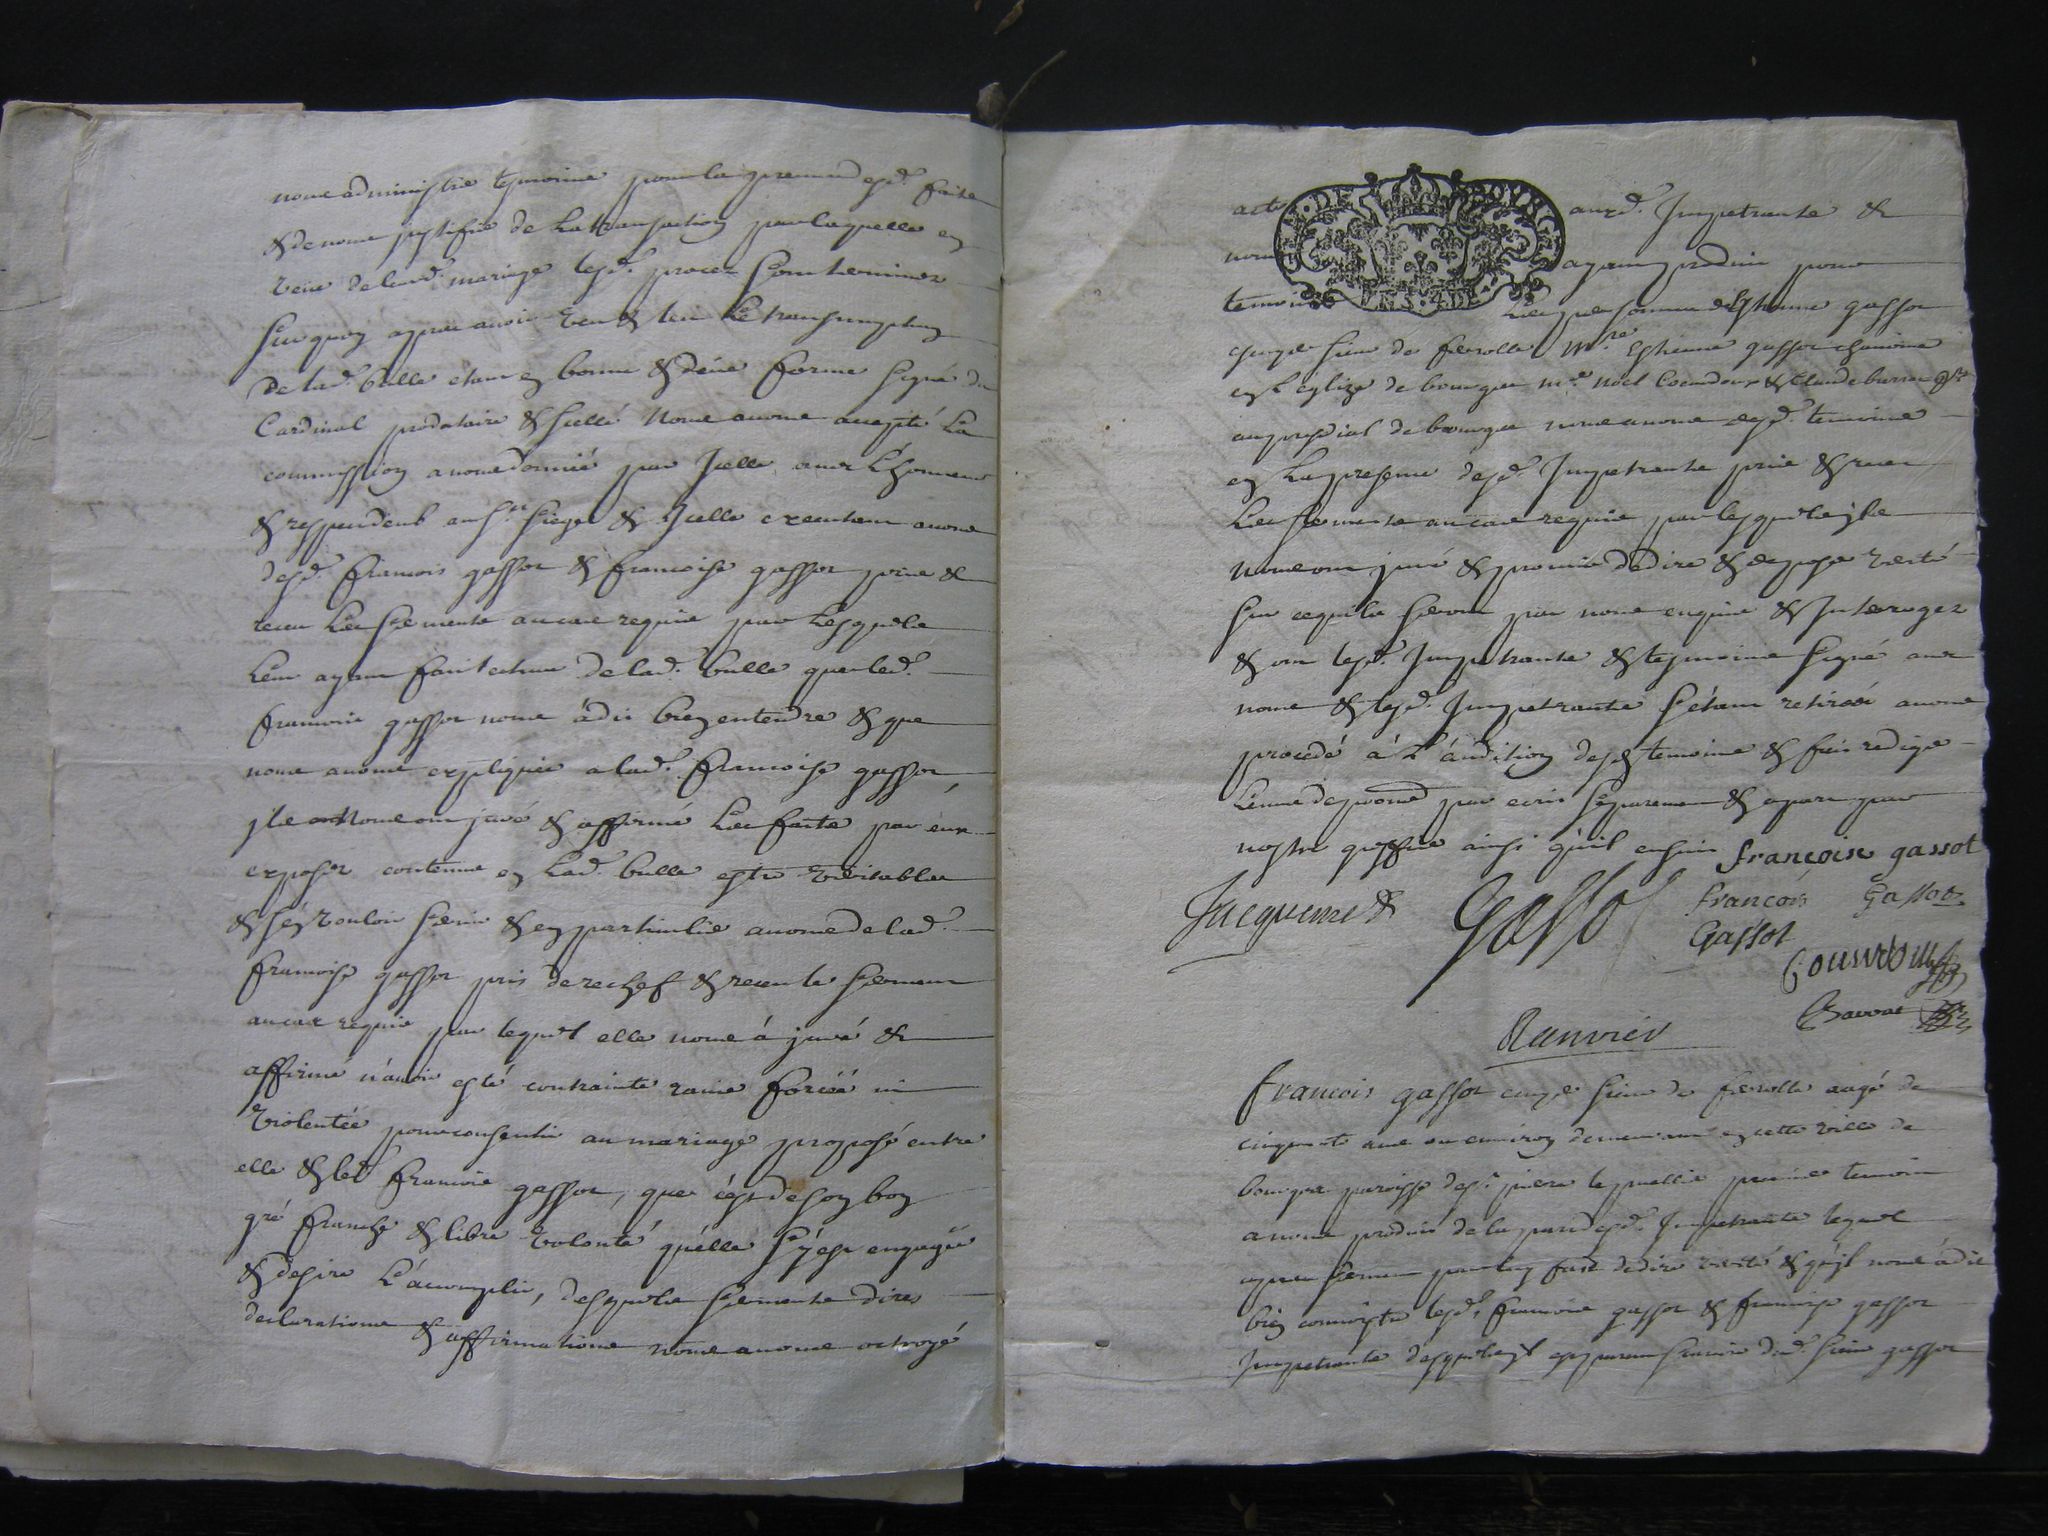 nous administrer tesmoins pour la preuve desd. faits
& de nous justifier de la transaction par laquelle en
veue de leurd. mariage lesd. procez sont terminez
Sur quoy apres avoir veu & leu le transumptum
de lad. bulle estant en bonne & deüe forme signé du
Cardinal prodataire & scellé Nous avons accepté la
commission a nous donnée par Icelle avec l'honneur
& respect deub au St. Siege & Icelle executant avons
desd. francois gassot & francoise gassot pris &
receu les sermens au cas requis par lesquels
leur ayant fait lecture de lad. bulle que led.
francois gassot nous à dit bien entendre & que
nous avons expliquée a lad. francoise gassot
ils nous ont juré & affirmé les faits par eux
exposez contenus en lad. bulle estre veritables
& s'en vouloir servir & en particulier avons de lad.
francoise gassot pris derechef & receu le serment
au cas requis par lequel elle nous à juré &
affirmé n'avoir esté contrainte ravie forcéé ni
violentée pour consentir au mariage proposé entre
elle & led. francois gassot, que c'est de son bon
gré franche & libre volonté qu'elle s'y est engagée
& desire l'accomplir, desquels sermens dires
declarations & affirmations nous avons octroyé
acte auxd. Impetrants &
nous ayant produit pour
temoins les personnes d'Estienne gassot
escuyer sieur de ferolle Mre. Estienne gassot chanoine
en l'eglize de bourges me. Noel & Claude
au presidial de bourges nous avons desd. temoins
en la presence desd. Impetrants pris & receu
les sermens au cas requis par lesquels ils
nous ont juré & promis de dire & deposer verité
sur ce qu'ils seront par nous enquis & Interrogez
& ont lesd. Impetrants & tesmoins signé avec
nous & lesd. Impetrants s'etant retiréé avons
procedé à l'audition desd. temoins & fait rediger
leurs depositions par ecrit separement & apart par
nostre greffier ainsi qu'il ensuit françoise gassot
Jacquemet Gassot francois Gassot
Gassot
Barrat
Ranvier
francois gassot escuyer sieur de ferolle aagé de
cinquante ans ou environ demeurant en cette ville de
bourges paroisse de St. pierre le puellier premier temoin
a nous produit de la part desd. Impetrants lequel
apres serment par luy fait de dire verité & qu'il nous à dit
bien connoistre lesd. francois gassot & francoise gassot
Impetrants desquels il est parent sieur gassot